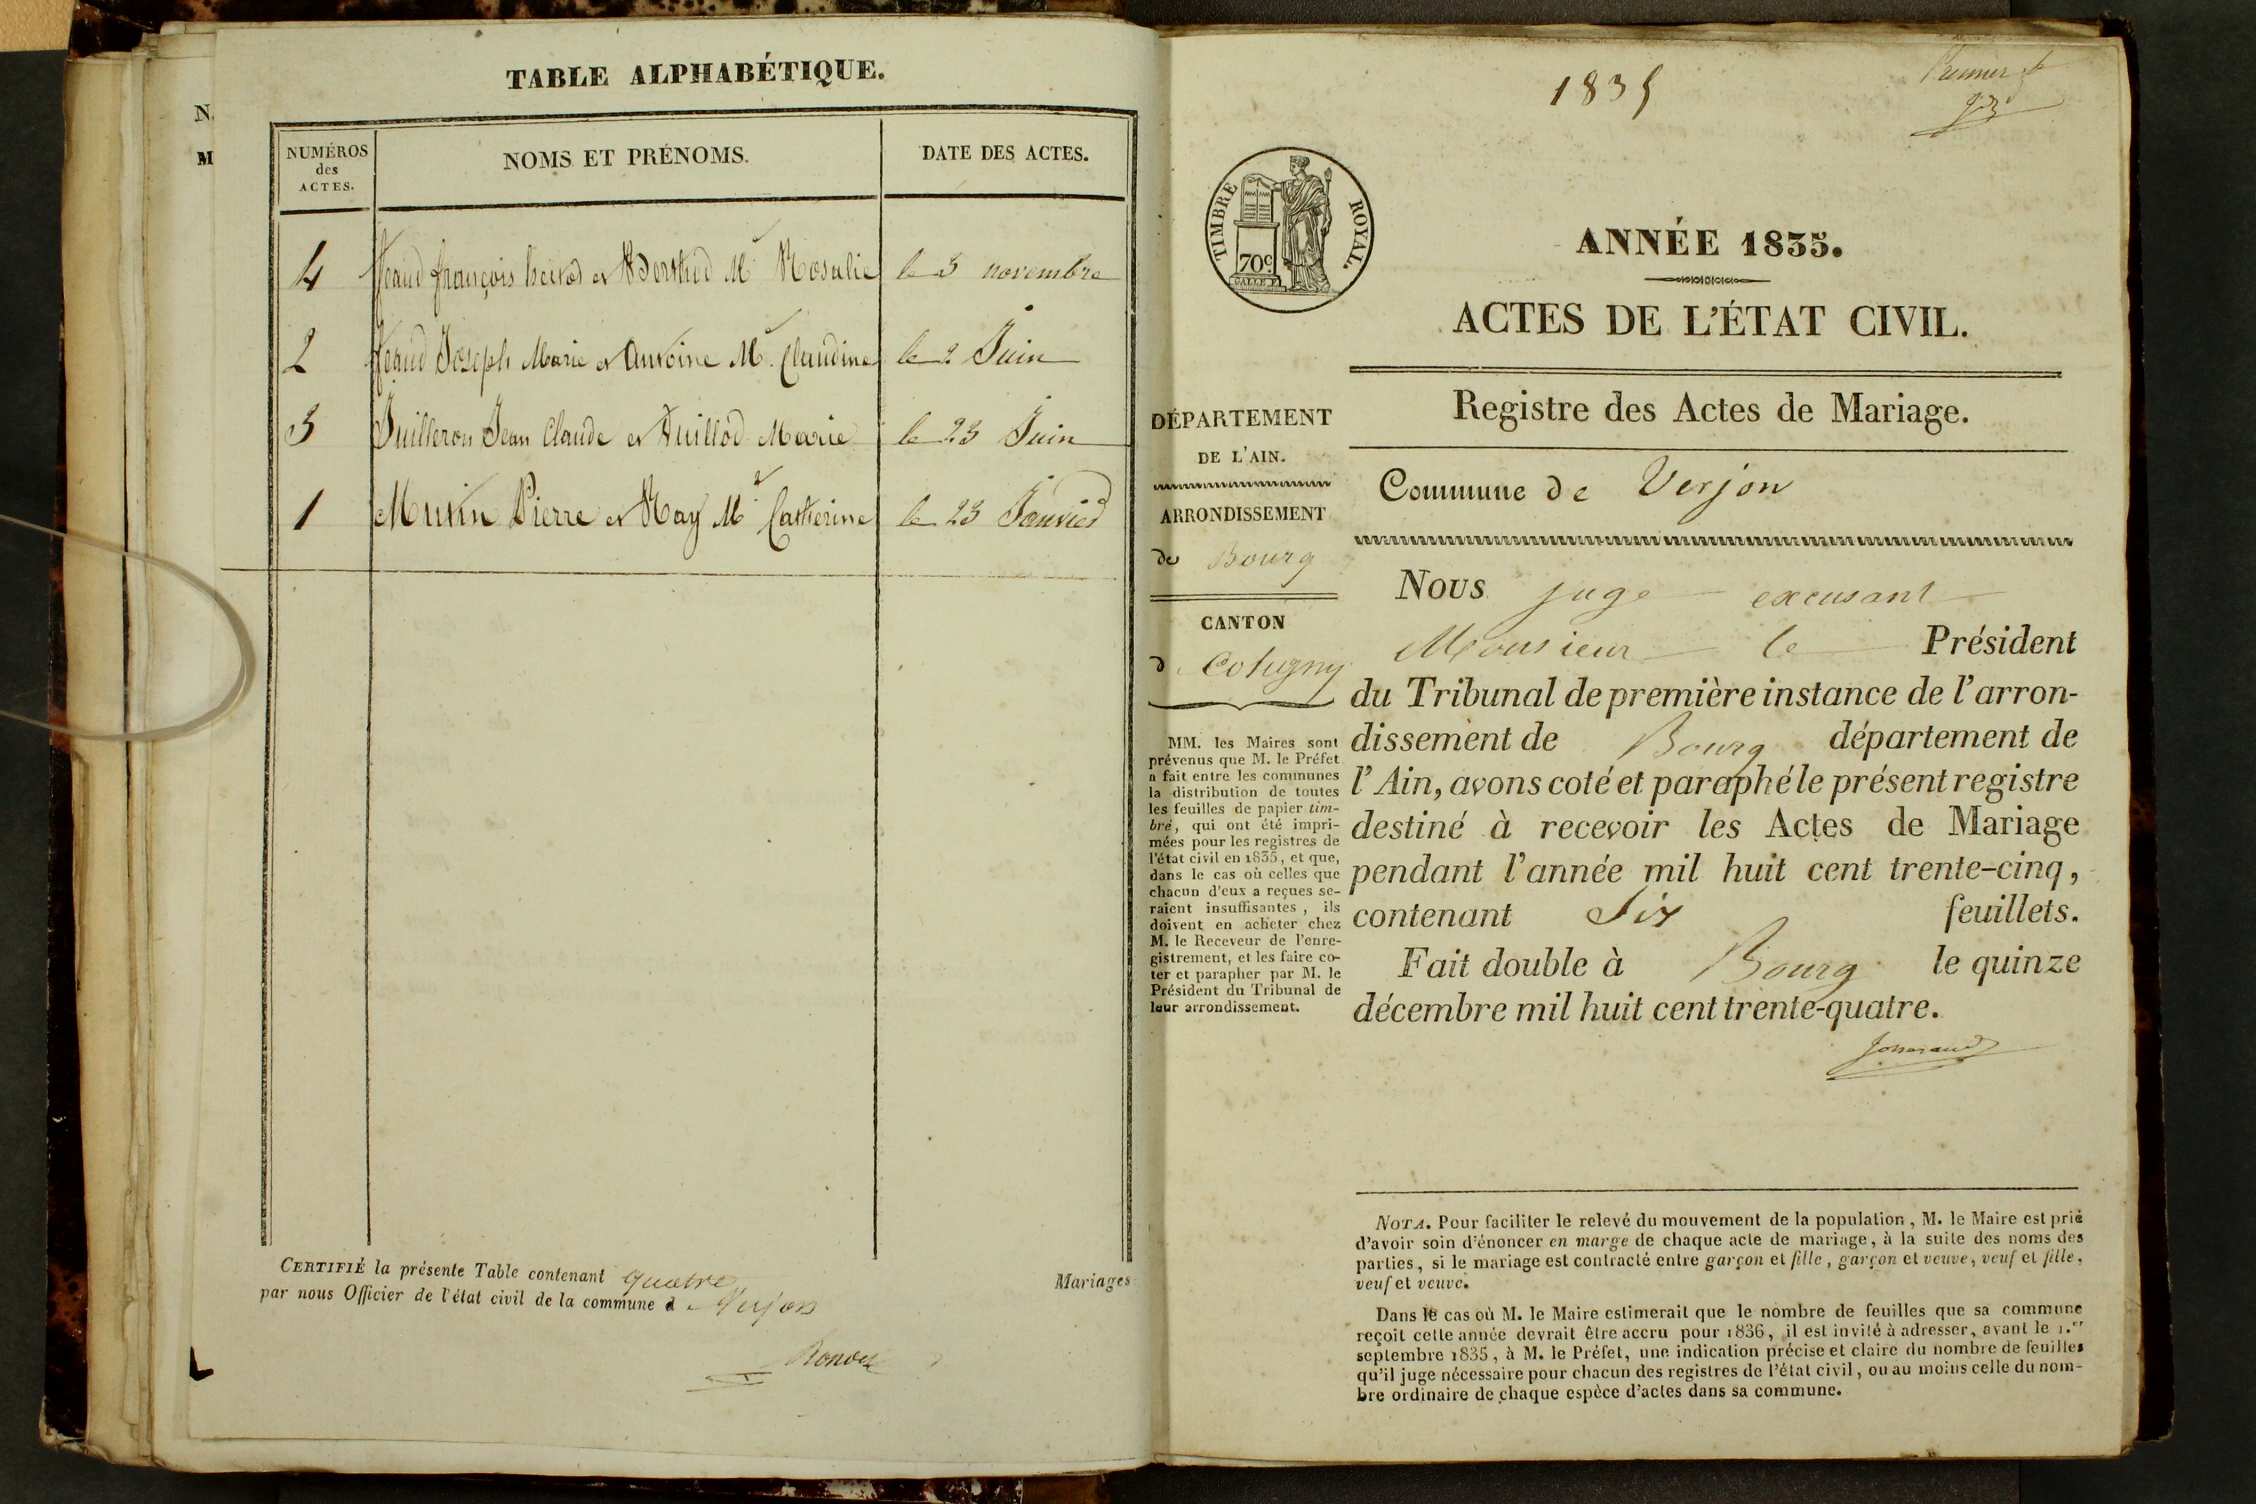 TABLE ALPHABÉTIQUE.
NUMÉROS
des
ACTES.
NOMS ET PRÉNOMS.
DATE DES ACTES.
4 Féaud françois hector et Berthed Mie Rosalie le 3 novembre
2 Féaud Joseph Marie et Antoine Mie Claudine le 2 Juin
3 Juilleron Jean Claude et Vuillod Marie le 23 Juin
1 Mutin Pierre et Ray Mie Catherine le 23 Janvier
CERTIFIÉ la présente Table contenant quatre Mariages
par nous Officier de l'état civil de la commune d e Verjon
N.
M
1835
Premier ft
TIMBRE ROYAL.
70c
ANNÉE 1835.
ACTES DE L'ÉTAT CIVIL.
Registre des Actes de Mariage.
Commune de Verjon
DÉPARTEMENT
DE L'AIN.
ARRONDISSEMENT
de Bourg
CANTON
d Coligny
MM. les Maires sont
prévenus que M. le Préfet
a fait entre les communes
la distribution de toutes
les feuilles de papier tim-
bré, qui ont été impri-
mées pour les registres de
l'état civil en 1835, et que,
dans le cas où celles que
chacun d'eux a reçues se-
raient insuffisantes, ils
doivent en acheter chez
M. le Receveur de l'enre-
gistrement, et les faire co-
ter et parapher par M. le
Président du Tribunal de
leur arrondissement.
Nous juge excusant
Monsieur le Président
du Tribunal de première instance de l'arron-
dissement de Bourg département de
l'Ain, avons coté et paraphé le présent registre
destiné à recevoir les Actes de Mariage
pendant l'année mil huit cent trente-cinq,
contenant Six feuillets.
Fait double à Bourg le quinze
décembre mil huit cent trente-quatre.
NOTA. Pour faciliter le relevé du mouvement de la population, M. le Maire est prié
d'avoir soin d'énoncer en marge de chaque acte de mariage, à la suite des noms des
parties, si le mariage est contracté entre garçon et fille, garçon et veuve, veuf et fille,
veuf et veuve.
Dans le cas où M. le Maire estimerait que le nombre de feuilles que sa commune
reçoit cette année devrait être accru pour 1836, il est invité à adresser, avant le 1.er
septembre 1835, à M. le Préfet, une indication précise et claire du nombre de feuilles
qu'il juge nécessaire pour chacun des registres de l'état civil, ou au moins celle du nom-
bre ordinaire de chaque espèce d'actes dans sa commune.